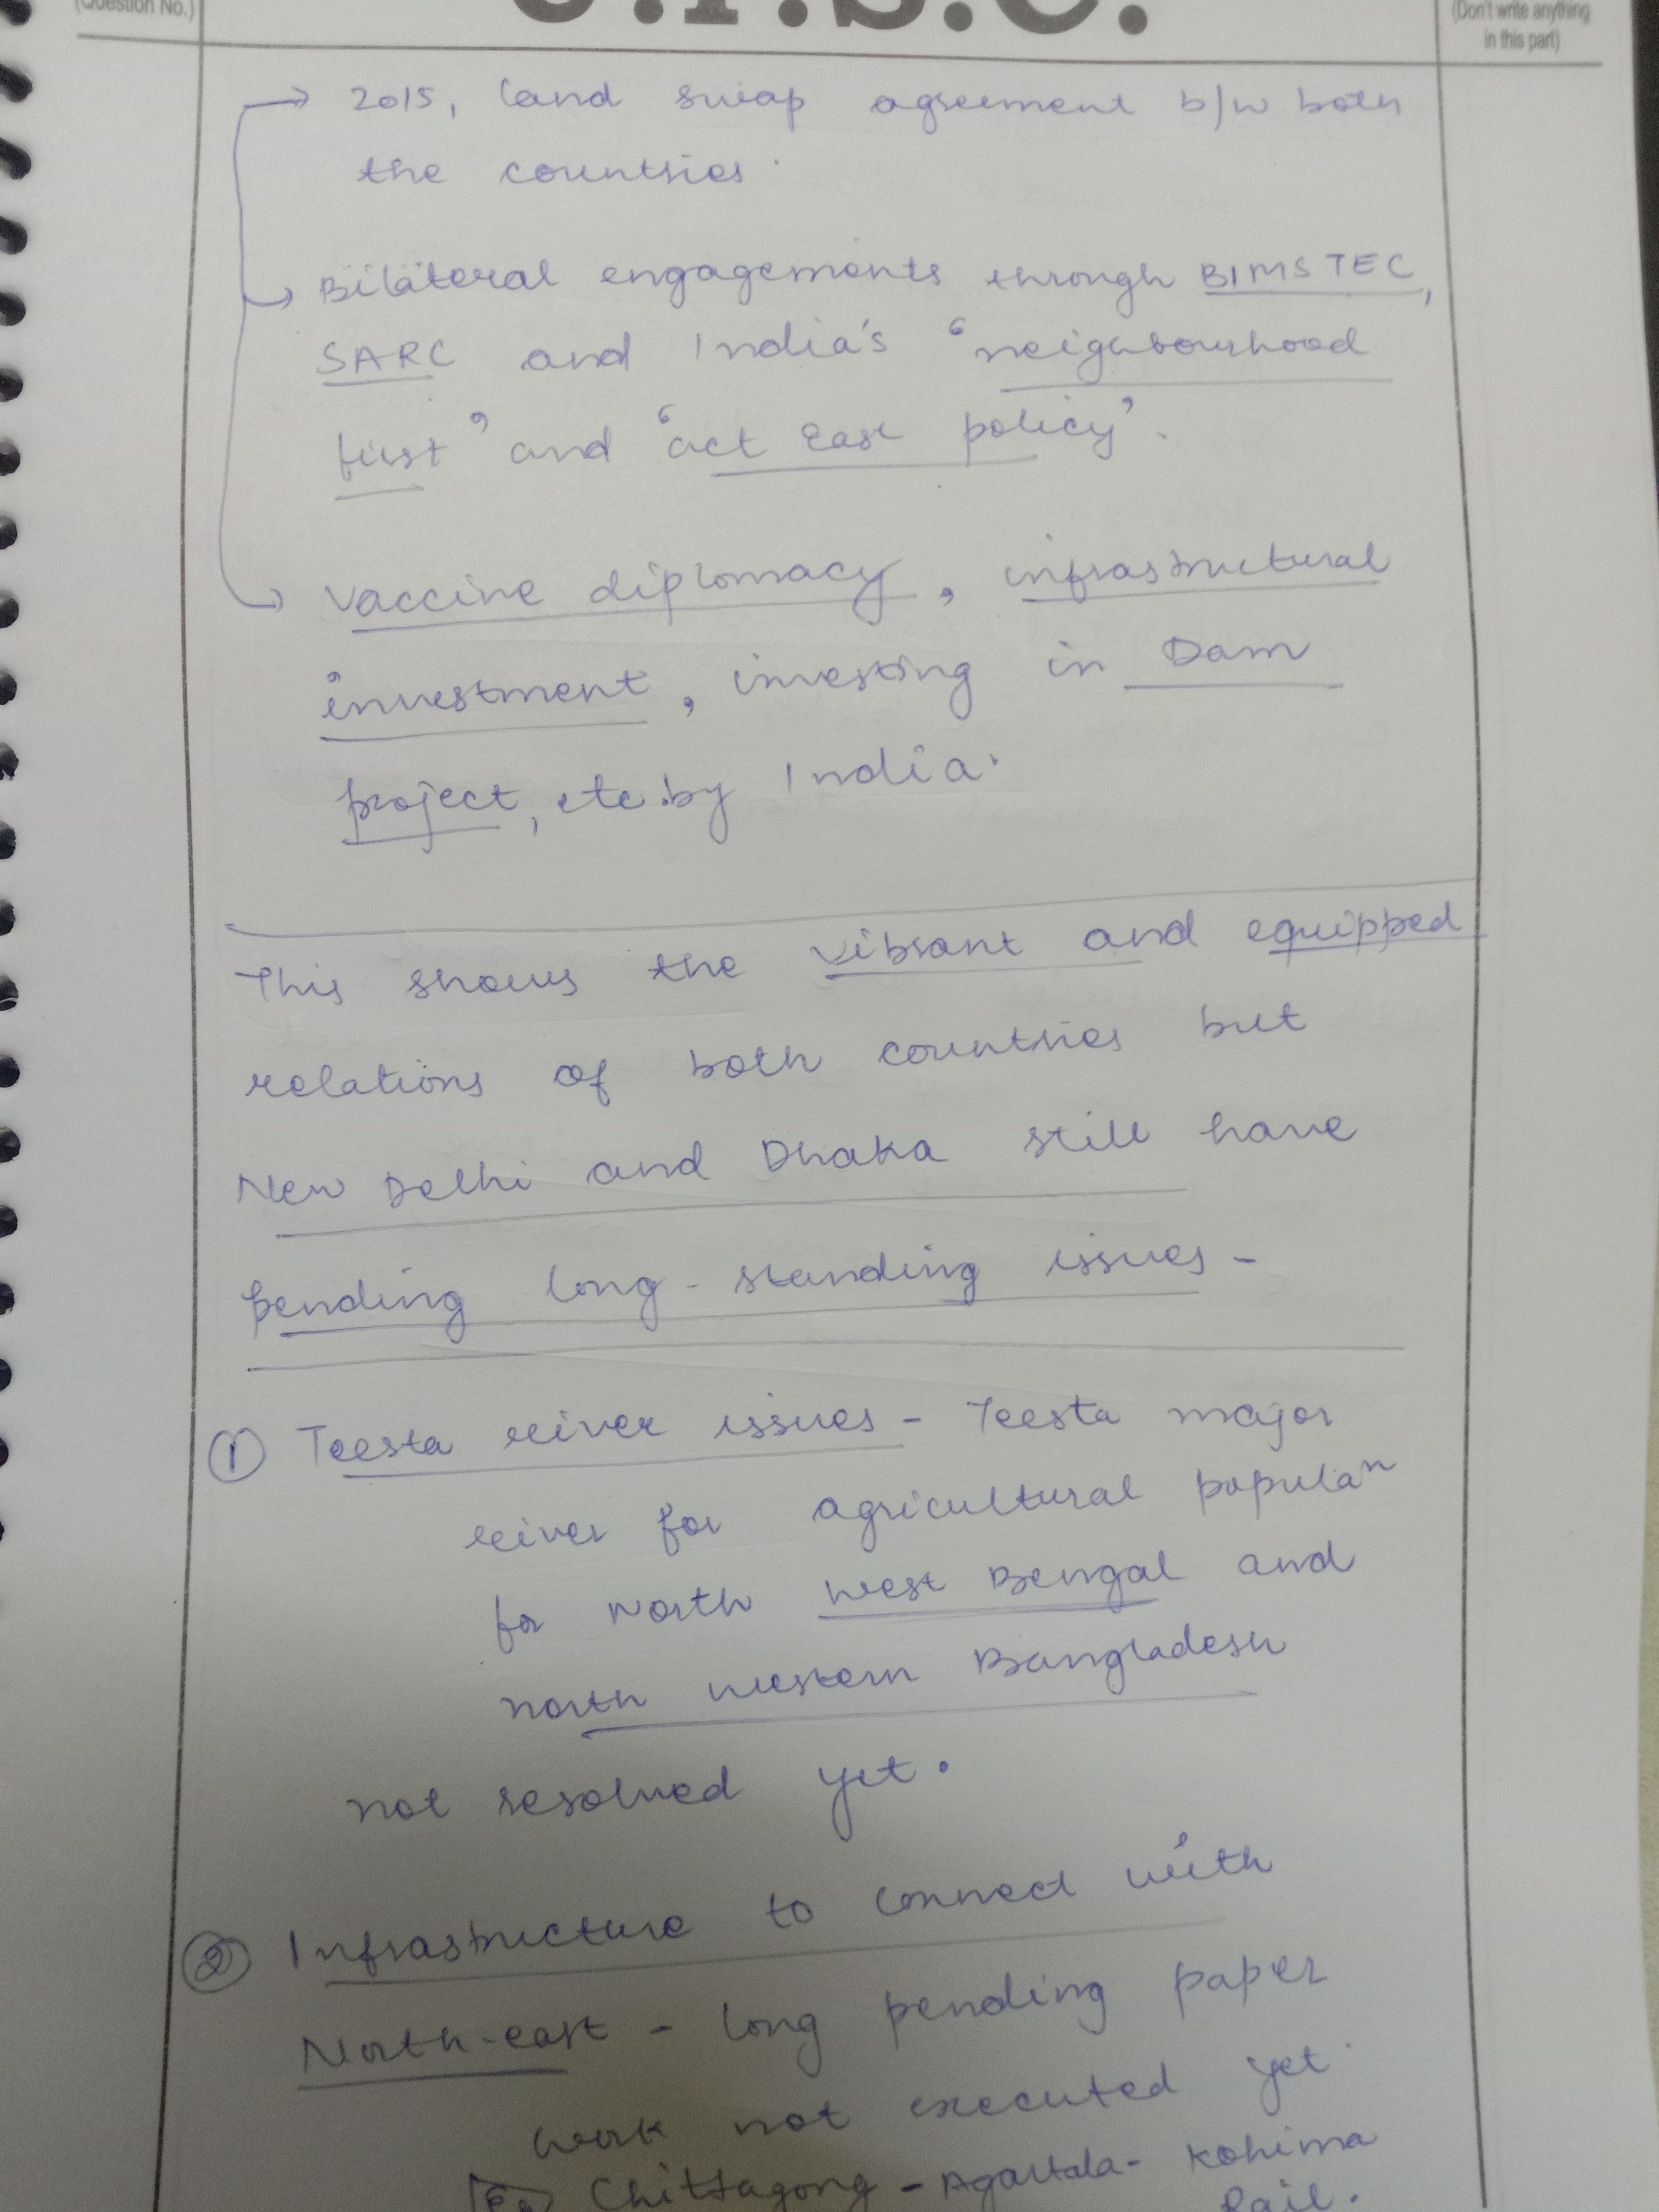 (Question No.)
U.P.S.C.
(Don't write anything
in this part)
→ 2015, land swap agreement b/w both
the countries.
→ Bilateral engagements through BIMSTEC,
SARC and India's 'neighbourhood
first' and 'act East policy'.
→ Vaccine diplomacy, infrastructural
investment, investing in Dam
project, etc. by India.
This shows the vibrant and equipped
relations of both countries but
New Delhi and Dhaka still have
pending long-standing issues -
① Teesta river issues - Teesta major
river for agricultural populaⁿ
for North West Bengal and
north western Bangladesh
not resolved yet.
② Infrastructure to connect with
North-east - long pending paper
work not executed yet.
Eg Chittagong - Agartala - Kohima
Rail.